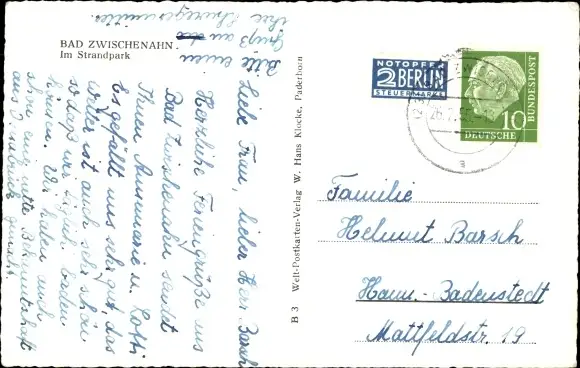 BAD ZWISCHENAHN
Im Strandpark
Liebe Frau, lieber Herr Barsch
Herzliche Feriengrüße aus
Bad Zwischenahn sendet
Ihnen Annemarie u. Lotti
Es gefällt uns sehr gut, das
Wetter ist auch sehr schön
so daß wir baden
können. Wir haben auch
schon eine nette Bekanntschaft
aus gemacht.
Bitte einen
Gruß an die
Schwiegermutter
NOTOPFER
2 BERLIN
STEUERMARKE
DEUTSCHE
BUNDESPOST
10
B 3 Welt-Postkarten-Verlag W. Hans Klocke, Paderborn
Familie
Helmut Barsch
Hann.-Badenstedt
Mattfeldstr. 19